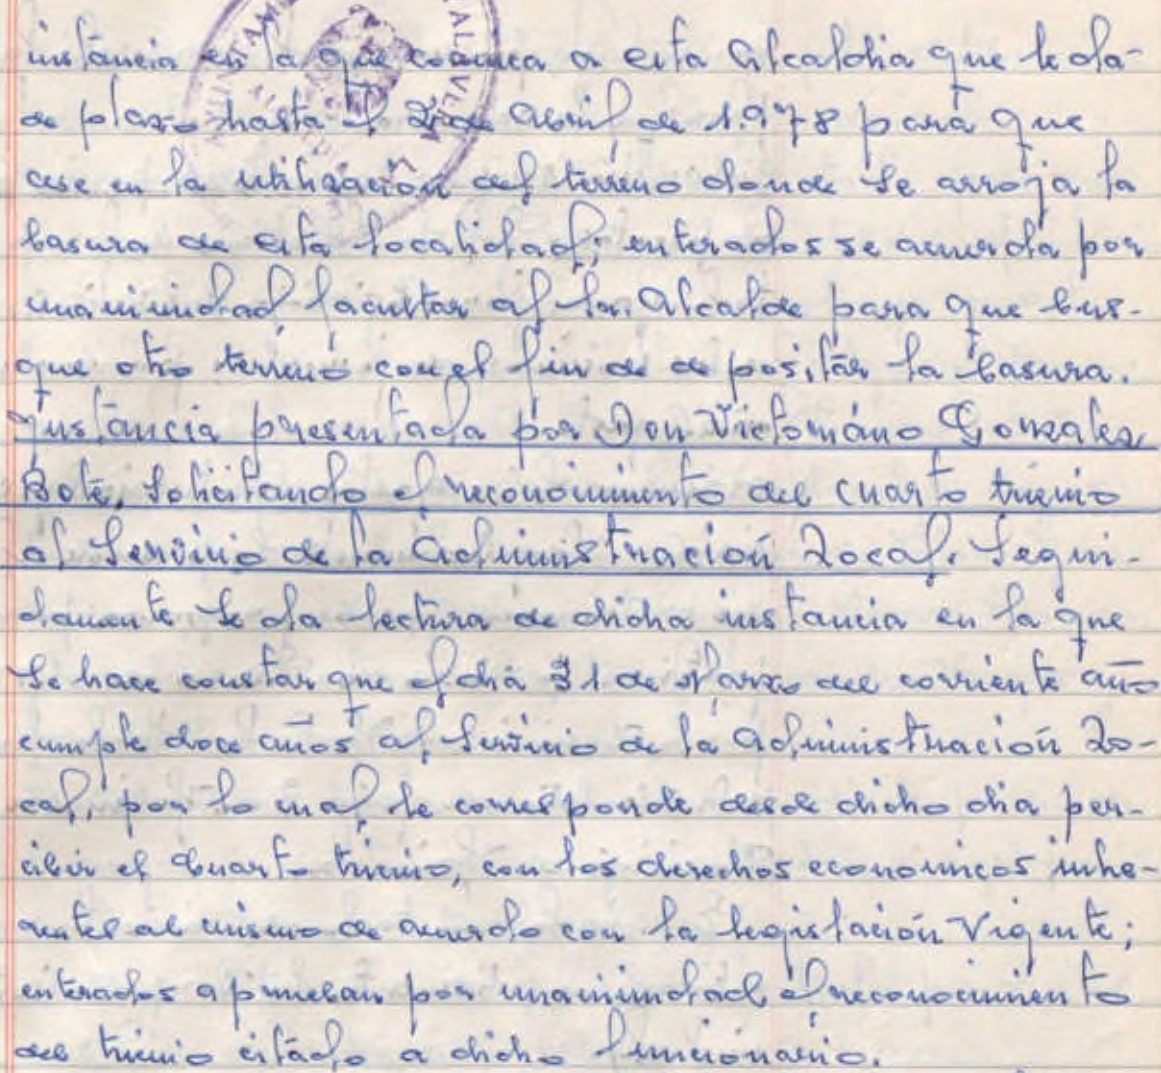 instancia en la que comunca a esta Alcaldia que le da-
de plazo hasta el 2 de Abril de 1.978 para que
cese en la utilización del terreno donde se arroja la
basura de esta localidad; enterados se acuerda por
unanimidad facultar al Sr. Alcalde para que bus-
que otro terreno con el fin de depositar la basura.
Instancia presentada por Don Victoriano Gonzalez
Bote, Solicitando el reconocimiento del cuarto trienio
al Servicio de la Administración Local. Segui-
damente se da lectura de dicha instancia en la que
se hace constar que el dia 31 de Marzo del corriente año
cumple doce años al Servicio de la Administración Lo-
cal, por lo cual le corresponde desde dicho dia per-
cibir el cuarto trienio, con los derechos economicos inhe-
rentes al mismo de acuerdo con la legislación Vigente;
enterados aprueban por unanimidad el reconocimiento
del trienio citado a dicho funcionario.